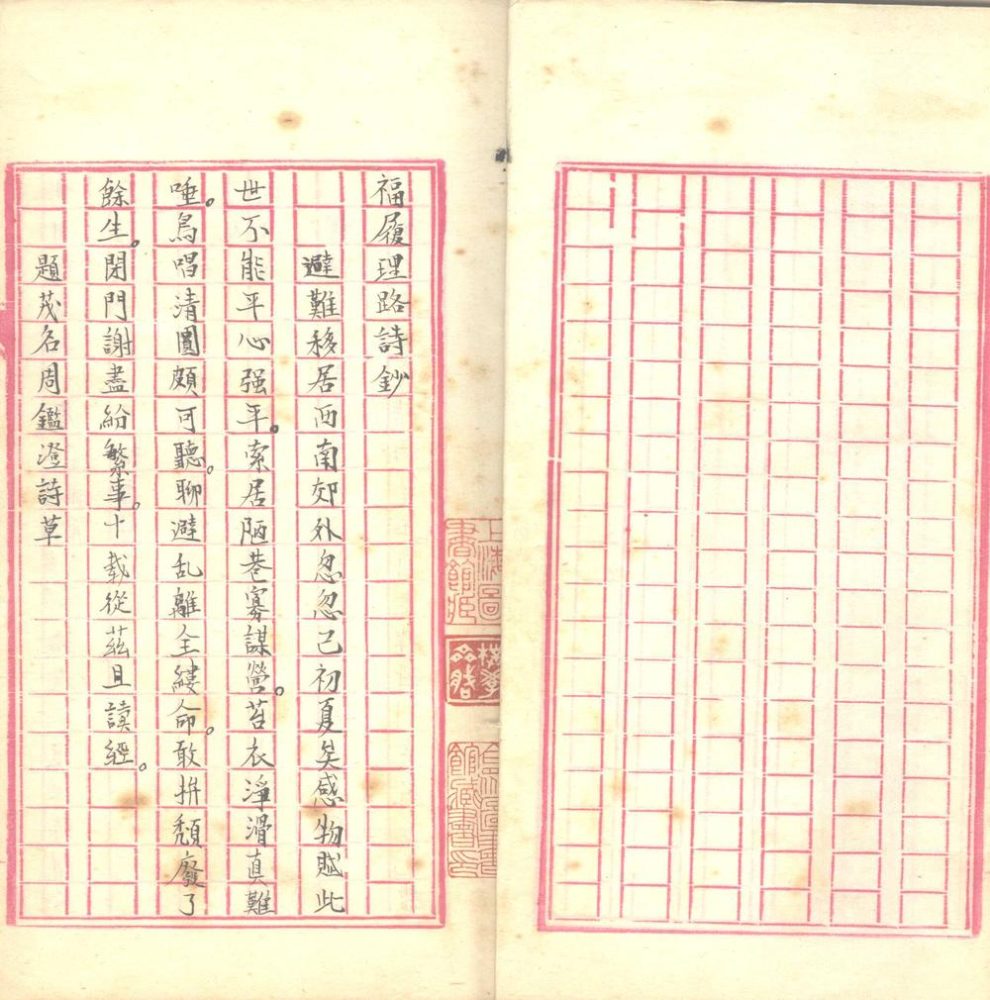 福履理路詩鈔
避難移居西南郊外忽忽已初夏矣感物賦此
世不能平心强平。索居陋巷寡謀營。苔衣淨滑真難
唾。鳥唱清圓頗可聽。聊避乱離全縷命。敢拚頹廢了
餘生。閉門謝盡紛繁事。十載從茲且讀經。
題茂名周鑑澄詩草
上海圖
書館藏